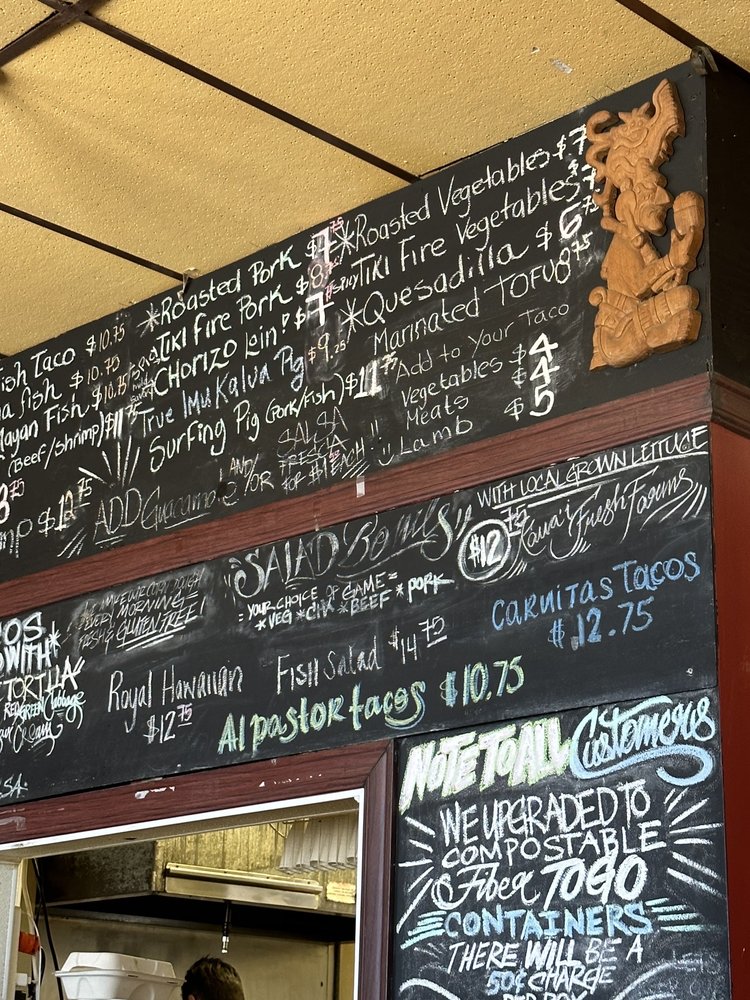 ish Taco $10.75
a fish $10.75
Mayan Fish $10.75
(Beef/Shrimp) $11.75
$12.75
*Roasted Pork $7
TIKI Fire Pork $8.75
CHORIZO Loin! $7
True Imu Kalua Pig $9.25
Surfing Pig (Pork/Fish) $11.75
ADD Guacamole AND/OR SALSA FRESCA FOR $1 EACH
*Roasted Vegetables $7
TIKI Fire Vegetables
*Quesadilla $6.75
Marinated TOFU 8.75
Add to Your Taco
Vegetables $4
Meats $4
Lamb $5
OS
WITH*
TORTILLA
RED GREEN Cabbage
Sour Cream
EVERY MORNING=
FRESH & GLUTEN FREE!
"SALAD Bowls" $12.75
=YOUR CHOICE OF GAME=
*VEG *CHX *BEEF *PORK
WITH LOCAL GROWN LETTUCE
Kaua'i Fresh Farms
Royal Hawaiian
$12.75
Fish Salad $14.75
Al pastor tacos $10.75
Carnitas Tacos
$12.75
NOTE TO ALL Customers
WE UPGRADED TO
COMPOSTABLE
Fiber TOGO
CONTAINERS
THERE WILL BE A
50¢ CHARGE